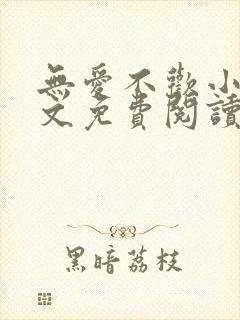 無愛不歡小
文免費閱讀
黑暗荔枝